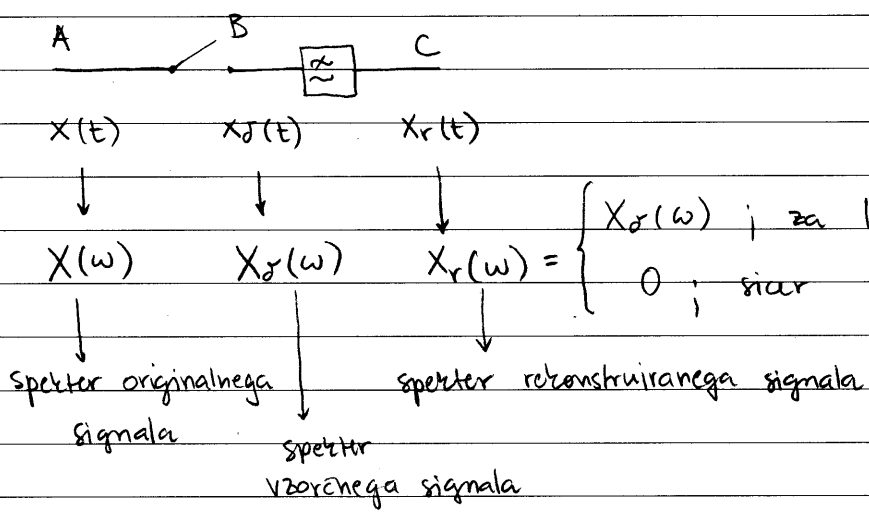 A B C
x(t) xδ(t) xr(t)
X(ω) Xδ(ω) Xr(ω) = { Xδ(ω) ; za |
0 ; sicer
spekter originalnega signala
spekter vzorčnega signala
spekter rekonstruiranega signala